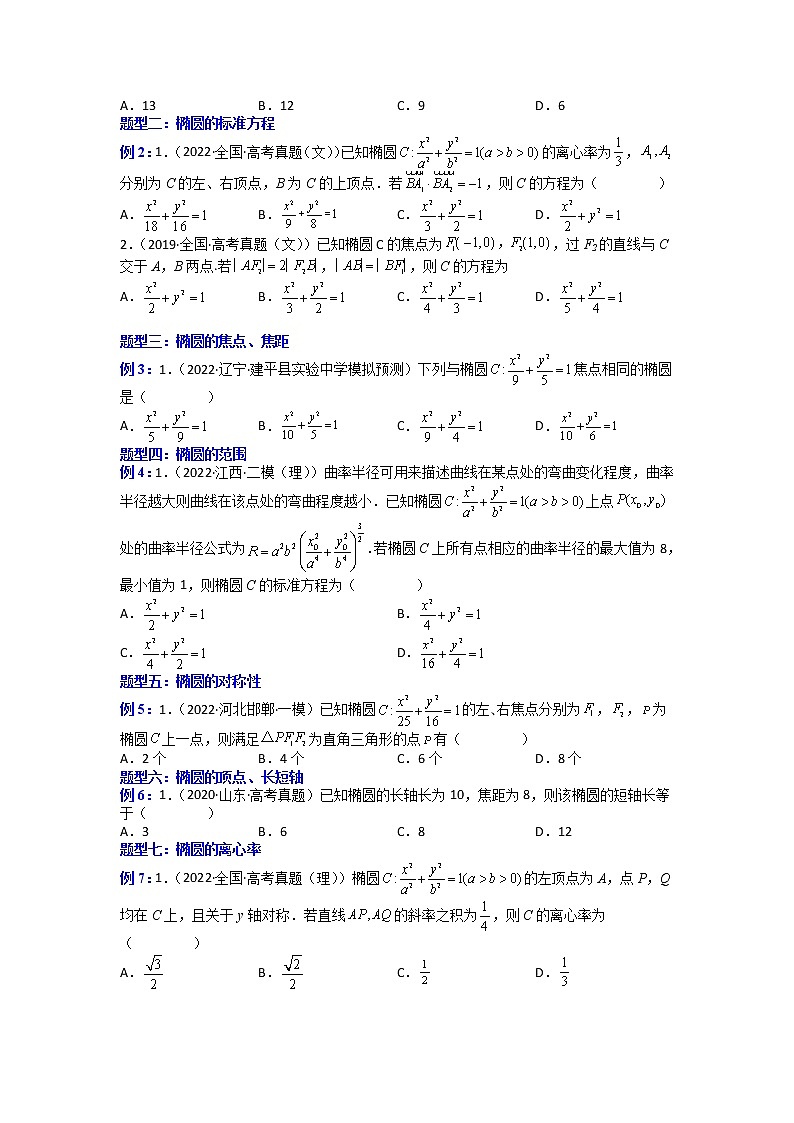 A.13 B.12 C.9 D.6
题型二：椭圆的标准方程
例2：1.（2022·全国·高考真题(文)）已知椭圆 C:x²/a²+y²/b²=1(a>b>0) 的离心率为 1/3，A₁,A₂
分别为 C 的左、右顶点，B 为 C 的上顶点．若 BA₁·BA₂=−1，则 C 的方程为（ ）
A. x²/18+y²/16=1 B. x²/9+y²/8=1 C. x²/3+y²/2=1 D. x²/2+y²=1
2.（2019·全国·高考真题（文））已知椭圆 C 的焦点为 F₁(−1,0)，F₂(1,0)，过 F₂ 的直线与 C
交于 A，B 两点.若 |AF₂|=2|F₂B|，|AB|=|BF₁|，则 C 的方程为
A. x²/2+y²=1 B. x²/3+y²/2=1 C. x²/4+y²/3=1 D. x²/5+y²/4=1
题型三：椭圆的焦点、焦距
例3：1.（2022·辽宁·建平县实验中学模拟预测）下列与椭圆 C:x²/9+y²/5=1 焦点相同的椭圆
是（ ）
A. x²/5+y²/9=1 B. x²/10+y²/5=1 C. x²/9+y²/4=1 D. x²/10+y²/6=1
题型四：椭圆的范围
例4：1.（2022·江西·二模（理））曲率半径可用来描述曲线在某点处的弯曲变化程度，曲率
半径越大则曲线在该点处的弯曲程度越小．已知椭圆 C:x²/a²+y²/b²=1(a>b>0) 上点 P(x₀,y₀)
处的曲率半径公式为 R=a²b²(x₀²/a⁴+y₀²/b⁴)^(3/2).若椭圆 C 上所有点相应的曲率半径的最大值为 8，
最小值为 1，则椭圆 C 的标准方程为（ ）
A. x²/2+y²=1 B. x²/4+y²=1
C. x²/4+y²/2=1 D. x²/16+y²/4=1
题型五：椭圆的对称性
例5：1.（2022·河北邯郸·一模）已知椭圆 C:x²/25+y²/16=1 的左、右焦点分别为 F₁，F₂，P 为
椭圆 C 上一点，则满足△PF₁F₂ 为直角三角形的点 P 有（ ）
A.2 个 B.4 个 C.6 个 D.8 个
题型六：椭圆的顶点、长短轴
例6：1.（2020·山东·高考真题）已知椭圆的长轴长为 10，焦距为 8，则该椭圆的短轴长等
于（ ）
A.3 B.6 C.8 D.12
题型七：椭圆的离心率
例7：1.（2022·全国·高考真题（理））椭圆 C:x²/a²+y²/b²=1(a>b>0) 的左顶点为 A，点 P，Q
均在 C 上，且关于 y 轴对称．若直线 AP,AQ 的斜率之积为 1/4，则 C 的离心率为
（ ）
A. √3/2 B. √2/2 C. 1/2 D. 1/3